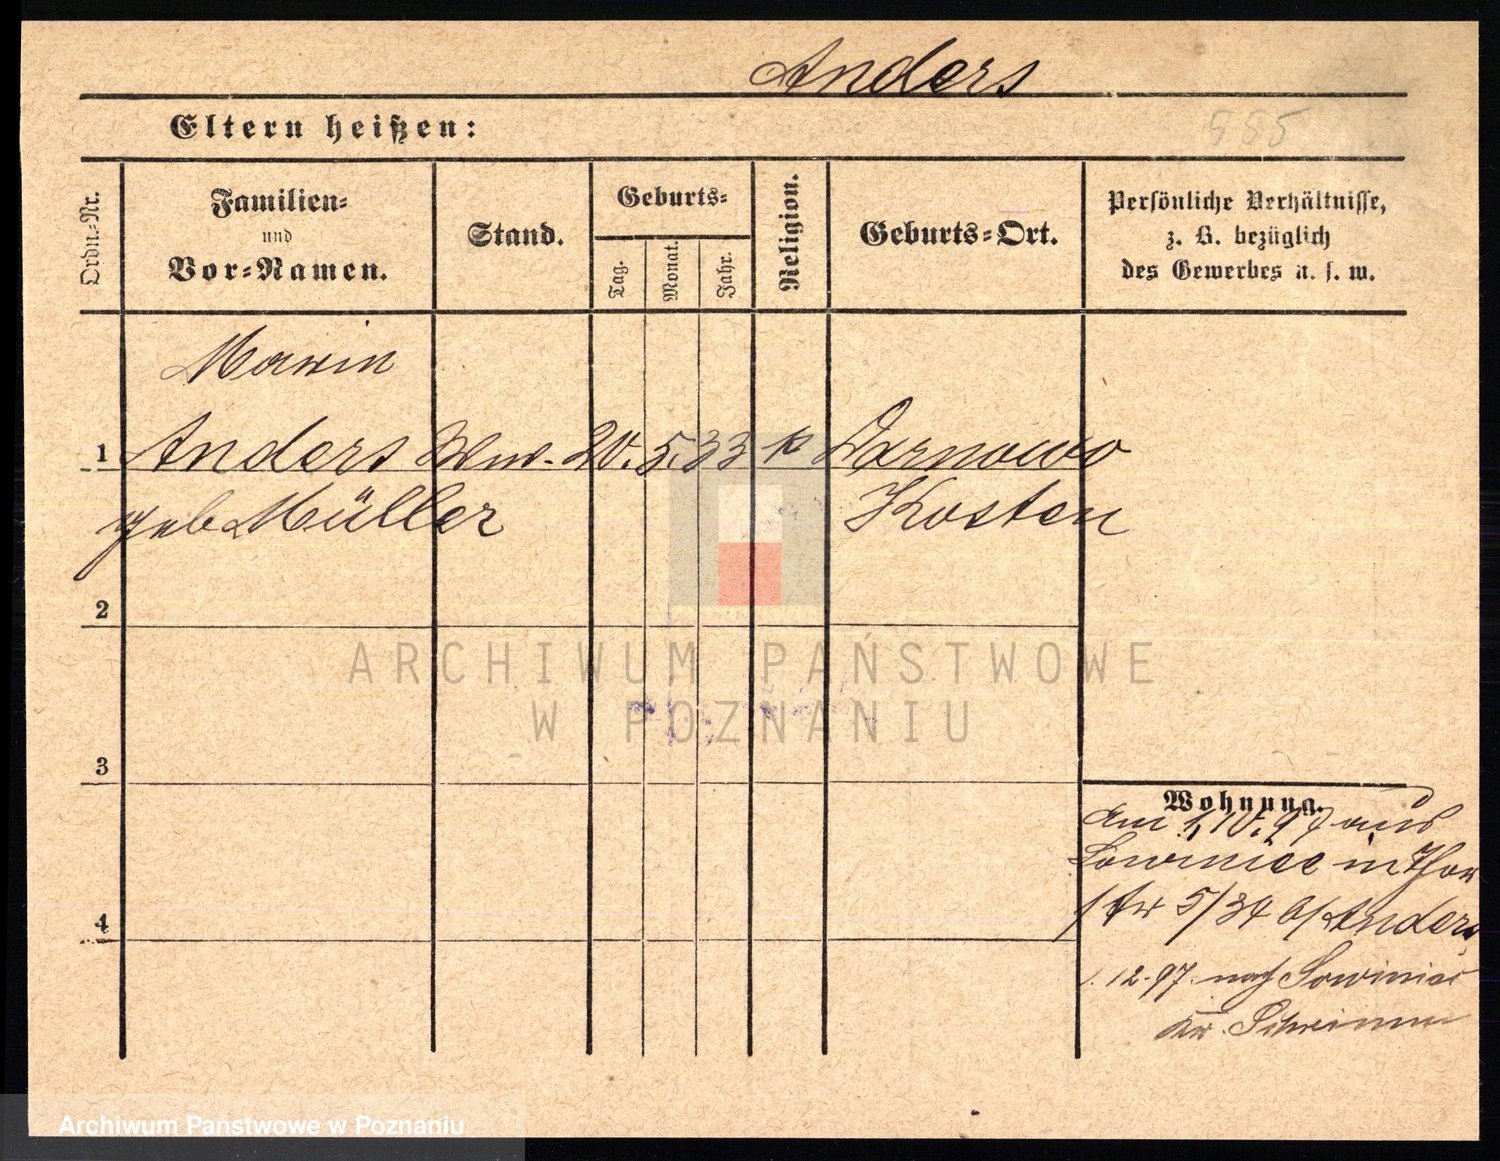 Anders
Eltern heißen:
555
Ordn.-Nr.
Familien-
und
Vor-Namen.
Stand.
Geburts-
Tag.
Monat.
Jahr.
Religion.
Geburts-Ort.
Persönliche Verhältnisse,
z. B. bezüglich
des Gewerbes u. s. w.
Marin
1 Anders Ww. 20. 5. 33 k Darnowo
geb Müller Kosten
2
3
4
Wohnung.
am 1, 10. 97 aus
Sowiniec in Thor
str 5/34 b/Anders
1. 12. 97. nach Sowiniec
Kr. Schrimm
ARCHIWUM PAŃSTWOWE
W POZNANIU
Archiwum Państwowe w Poznaniu